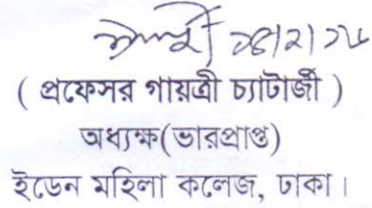 ( প্রফেসর গায়ত্রী চ্যাটার্জী )
অধ্যক্ষ(ভারপ্রাপ্ত)
ইডেন মহিলা কলেজ, ঢাকা।